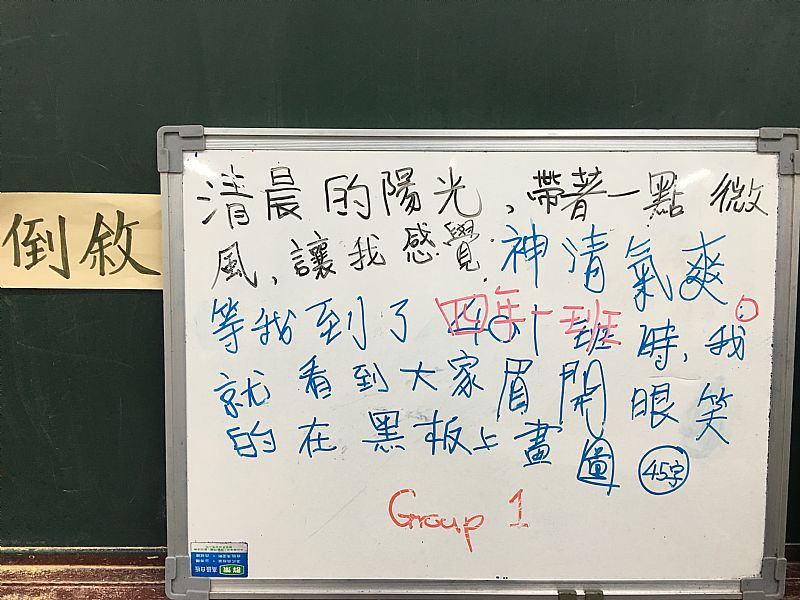 倒敘
清晨的陽光,帶著一點微
風,讓我感覺神清氣爽。
等我到了四年一班401班時,我
就看到大家眉開眼笑
的在黑板上畫圖 45字
Group 1